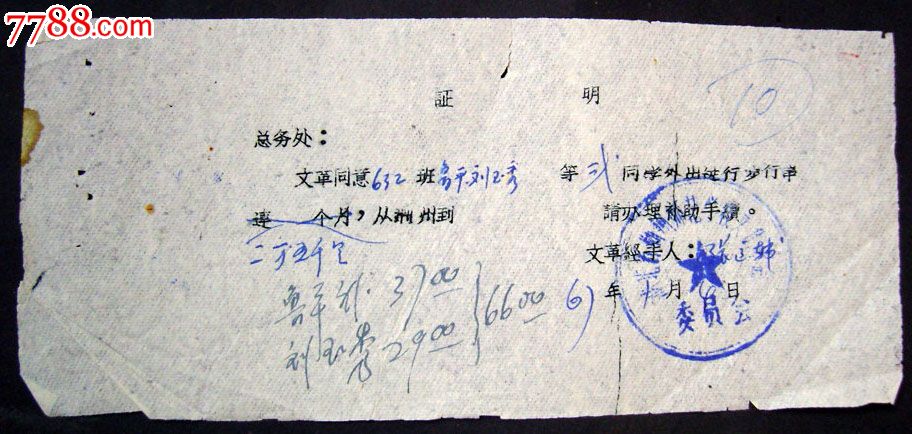 7788.com
10
証 明
总务处：
文革同意632班鲁平刘玉秀等弐同学外出进行步行串
連 个月，从 州到 請办理补助手續。
文革經手人：
年 月 日
委员会
二丁五千
鲁平 37.00
刘玉秀 29.00
66.00